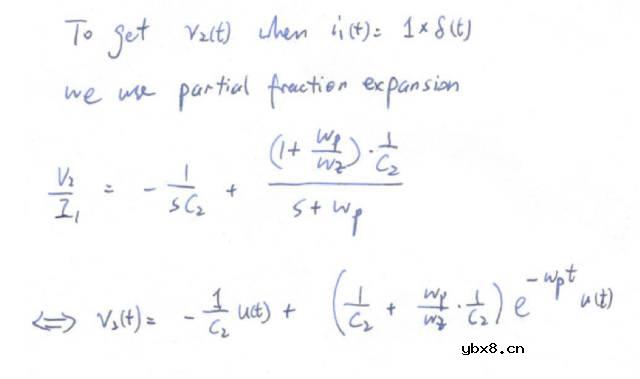 To get v₂(t) when i₁(t) = 1 × δ(t)
we use partial fraction expansion
V₂/I₁ = - 1/(sC₂) + ((1 + wp/wz) · 1/C₂)/(s + wp)
⟺ v₂(t) = - 1/C₂ u(t) + (1/C₂ + wp/wz · 1/C₂) e^(-wp t) u(t)
ybx8.cn